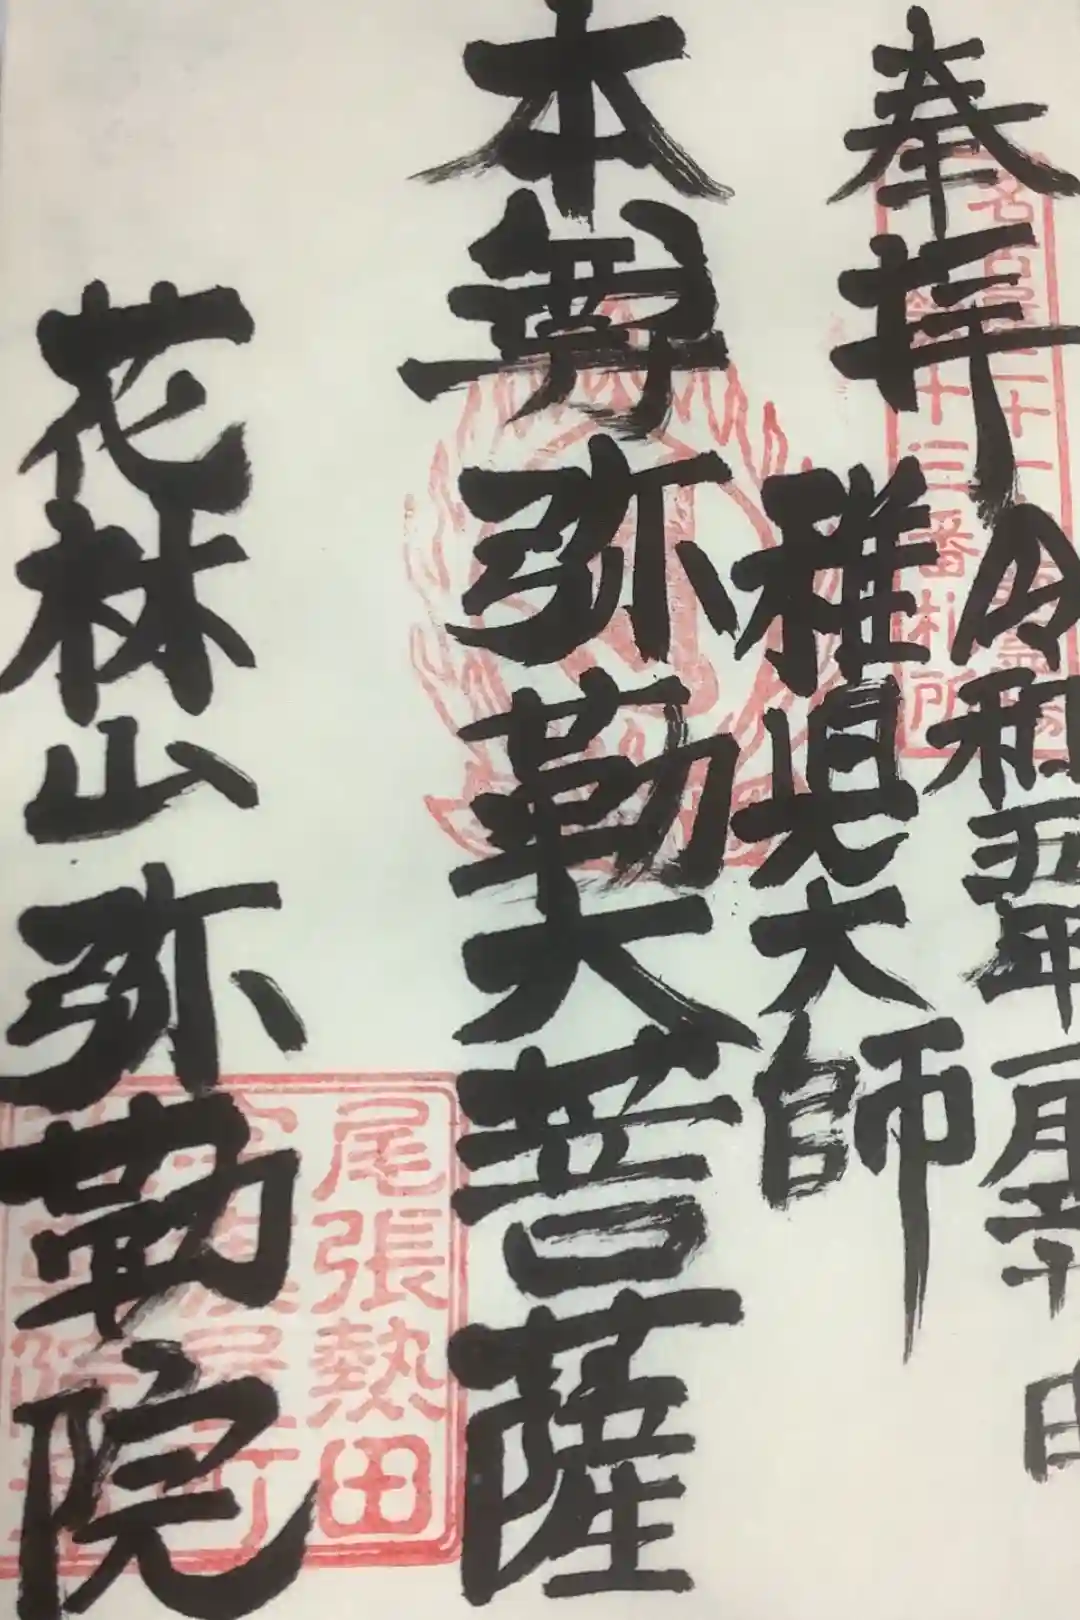 奉拝
令和五年
稚児大師
本尊弥勒大菩薩
花林山弥勒院
十三番札所
尾張熱田